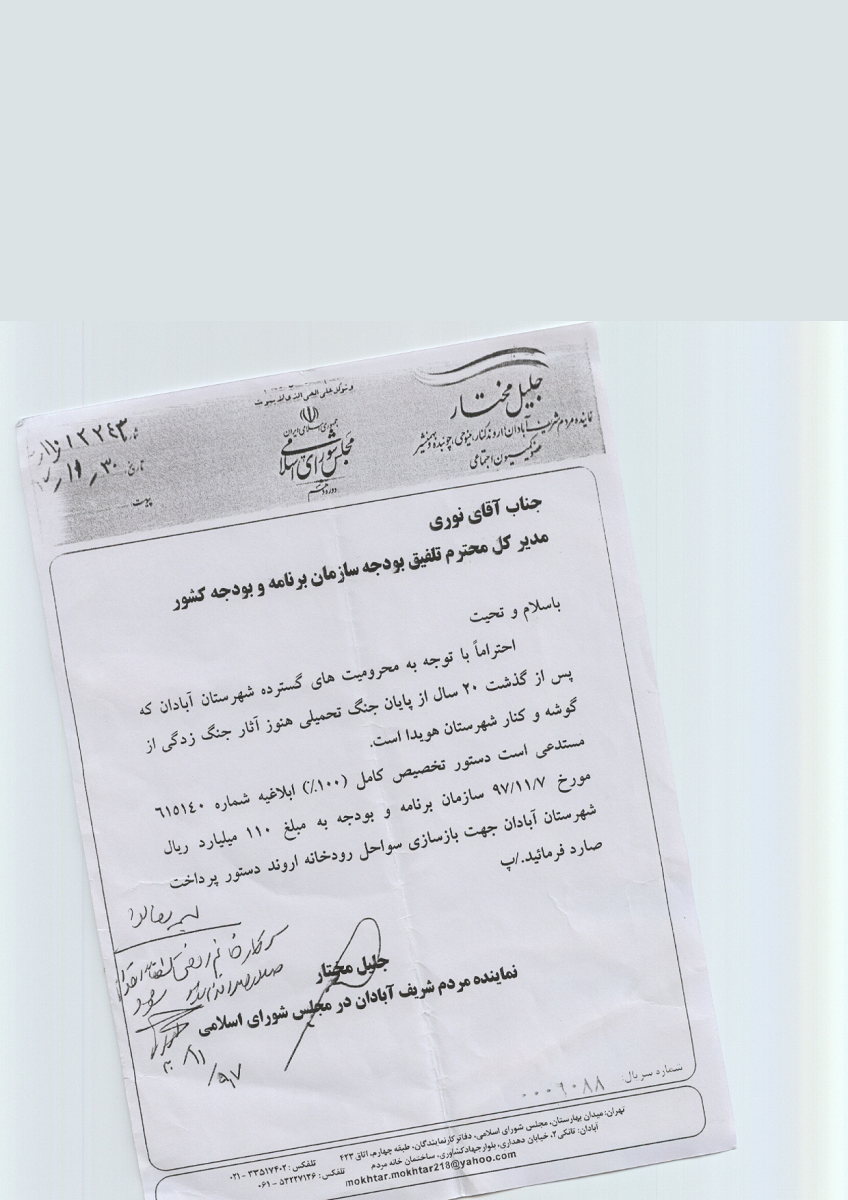 وتوکل علی الحی الذی لا یموت
جمهوری اسلامی ایران
مجلس شورای اسلامی
دوره دهم
جلیل مختار
نماینده مردم شریف آبادان، اروندکنار، مینوحی، چوبنده و بهمنشیر
عضو کمیسیون اجتماعی
تاریخ:
پیوست
جناب آقای نوری
مدیر کل محترم تلفیق بودجه سازمان برنامه و بودجه کشور
باسلام و تحیت
احتراماً با توجه به محرومیت های گسترده شهرستان آبادان که
پس از گذشت ۲۰ سال از پایان جنگ تحمیلی هنوز آثار جنگ زدگی از
گوشه و کنار شهرستان هویدا است.
مستدعی است دستور تخصیص کامل (۱۰۰٪) ابلاغیه شماره ۶۱۵۱۴۰
مورخ ۹۷/۱۱/۷ سازمان برنامه و بودجه به مبلغ ۱۱۰ میلیارد ریال
شهرستان آبادان جهت بازسازی سواحل رودخانه اروند دستور پرداخت
صارد فرمائید./پ
جلیل مختار
نماینده مردم شریف آبادان در مجلس شورای اسلامی
سرکار خانم
شماره سریال: ۰۰۰۶۰۸۸
تهران: میدان بهارستان، مجلس شورای اسلامی، دفاتر کار نمایندگان، طبقه چهارم، اتاق ۴۲۳ تلفکس: ۳۳۵۱۷۴۰۲ - ۰۲۱
آبادان: تانکی۲، خیابان دهداری، بلوار جهاد کشاورزی، ساختمان خانه مردم تلفکس: ۵۳۲۲۷۱۲۶ - ۰۶۱
mokhtar.mokhtar218@yahoo.com